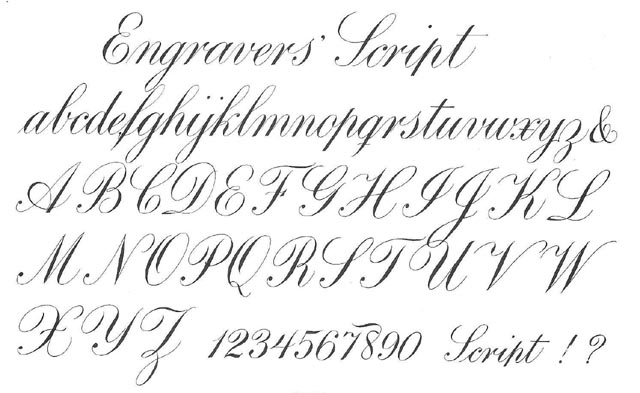 Engravers' Script
abcdefghijklmnopqrstuvwxyz&
ABCDEFGHIJKL
MNOPQRSTUVW
XYZ 1234567890 Script ! ?